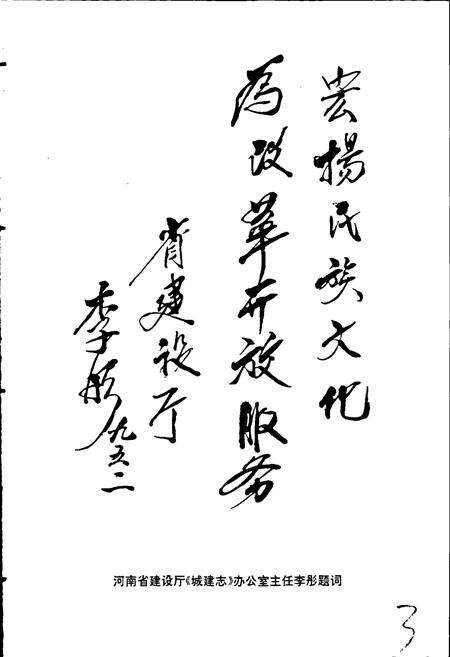 宏揚民族文化
為改革开放服务
省建设厅
李彤 九五、二
河南省建设厅《城建志》办公室主任李彤题词
3